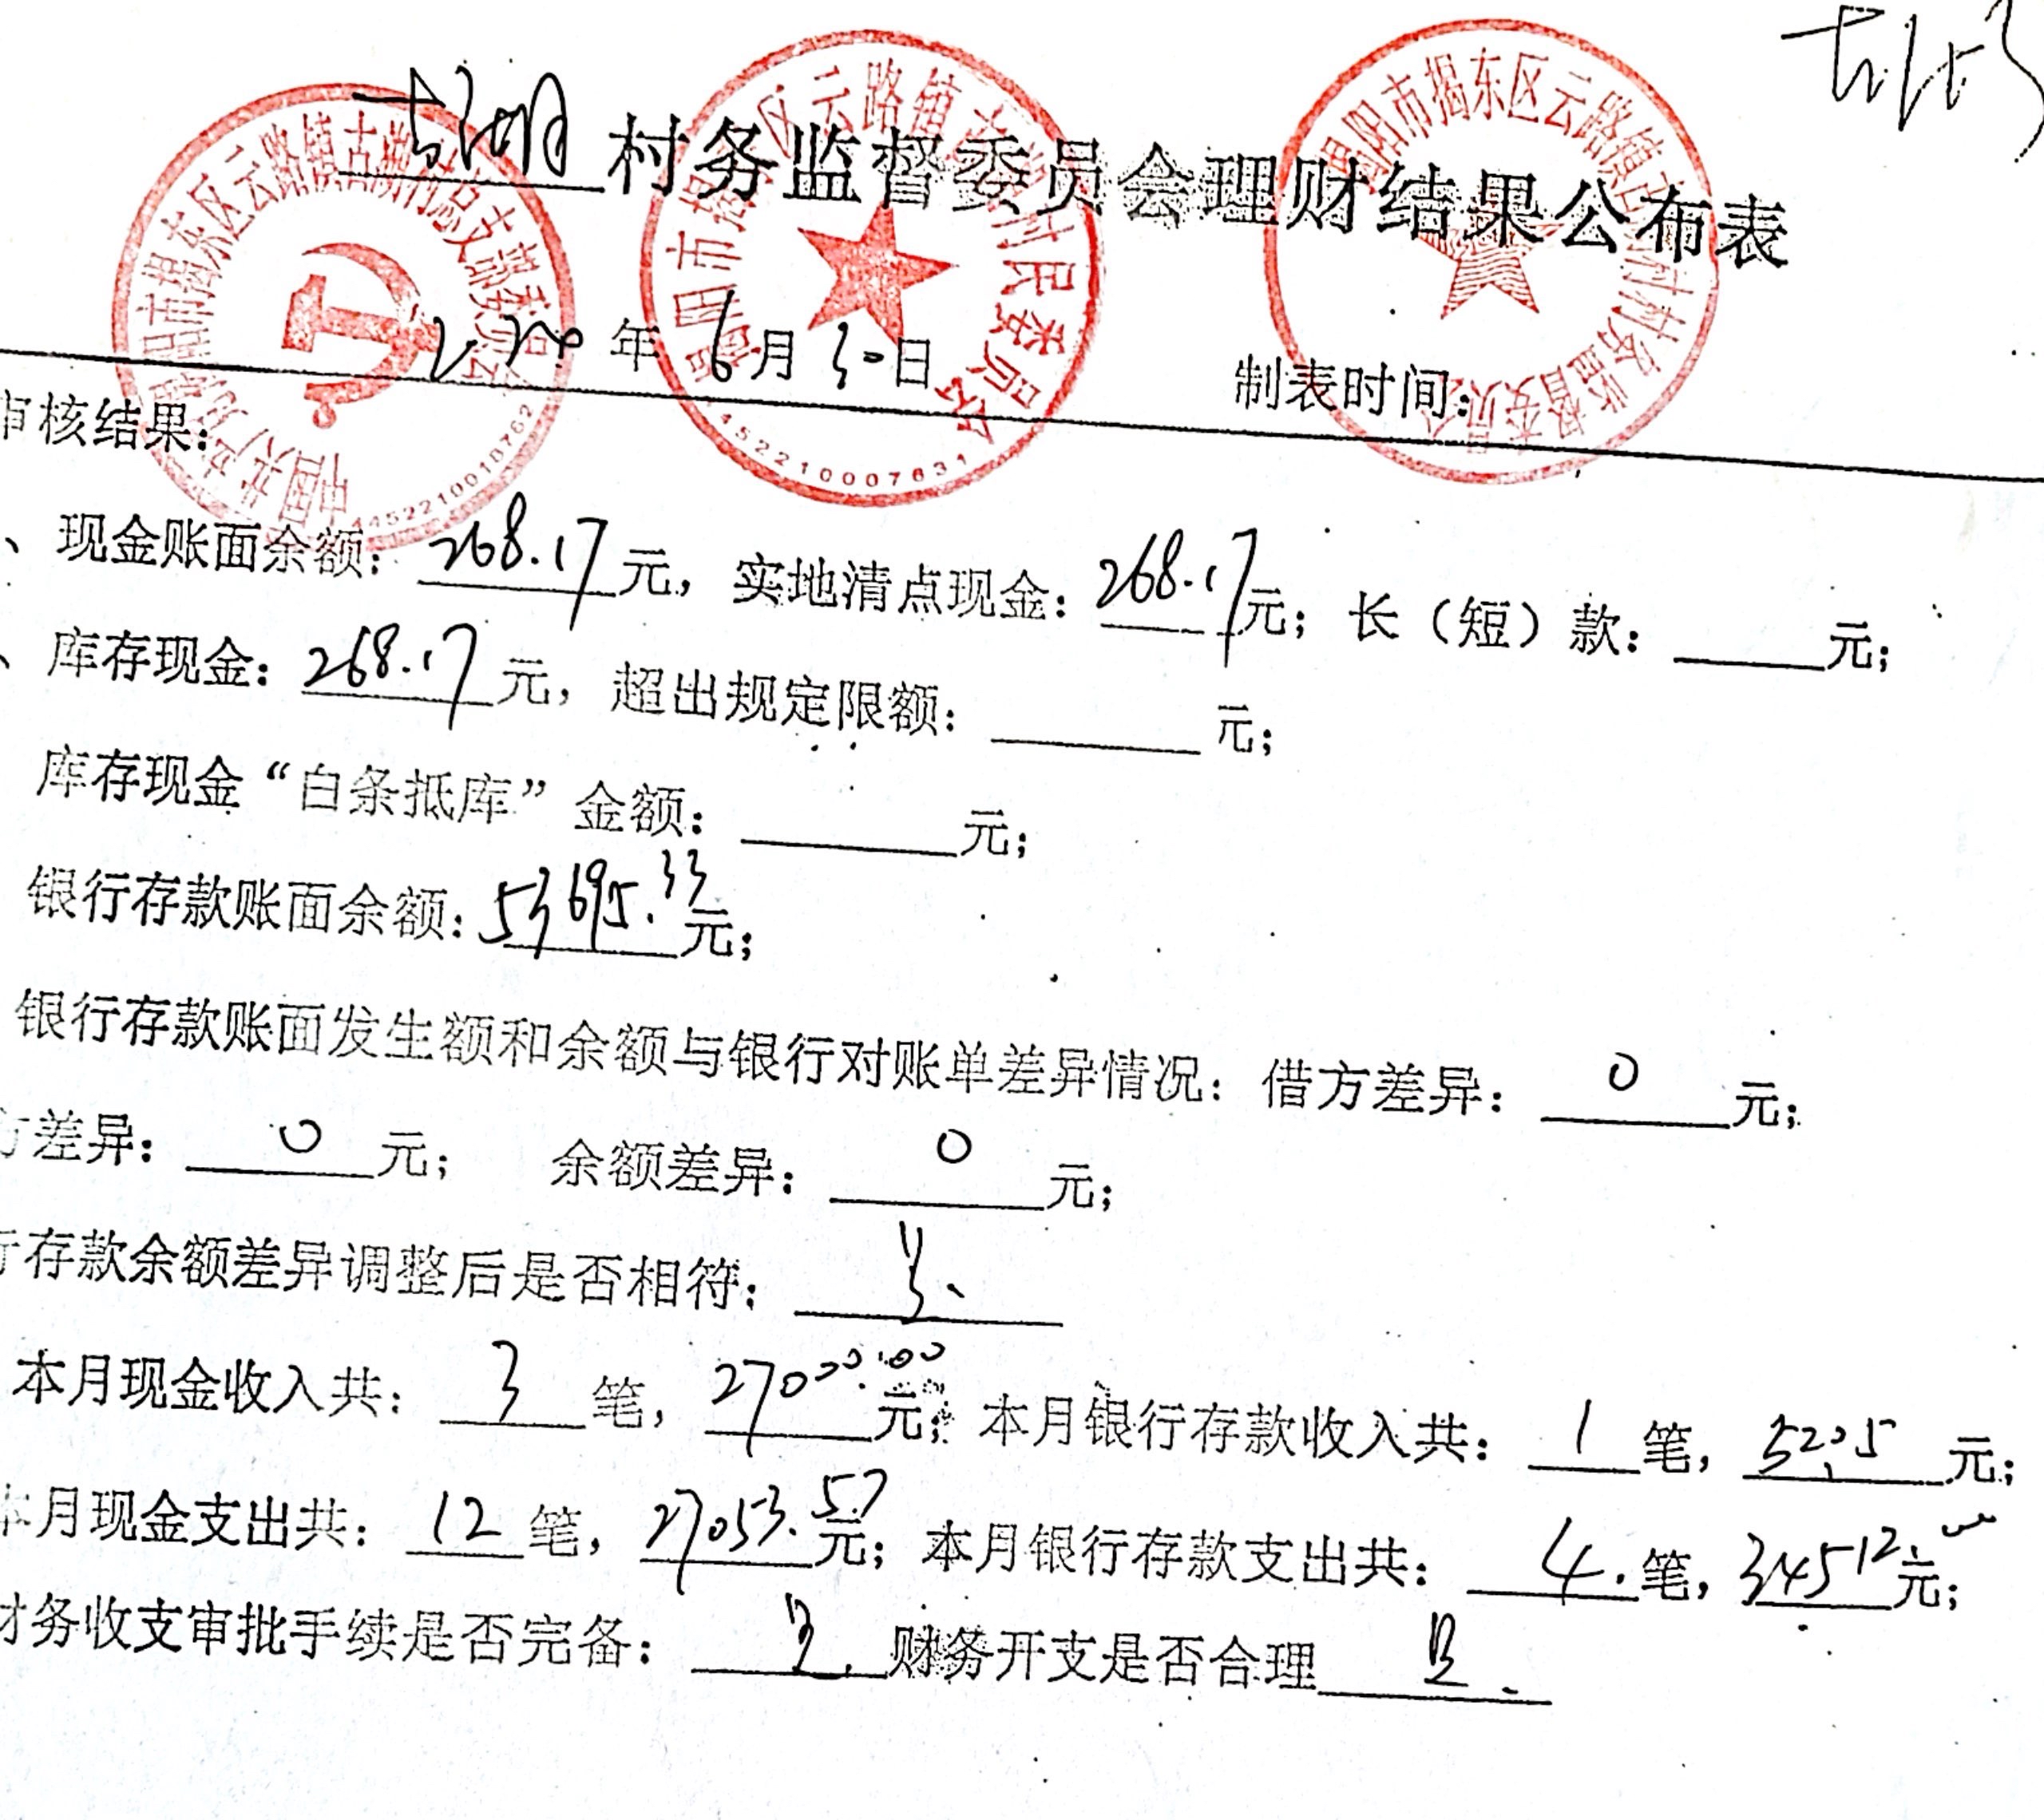 古湖
古湖村务监督委员会理财结果公布表
2020年6月30日 制表时间:
审核结果:
、现金账面余额: 268.17元, 实地清点现金: 268.17元; 长（短）款: 元;
、库存现金: 268.17元, 超出规定限额: 元;
库存现金“白条抵库”金额: 元;
银行存款账面余额: 53695.33元;
银行存款账面发生额和余额与银行对账单差异情况: 借方差异: 0元;
方差异: 0元; 余额差异: 0元;
行存款余额差异调整后是否相符: 是.
本月现金收入共: 3笔, 27000.00元; 本月银行存款收入共: 1笔, 52.05元;
本月现金支出共: 12笔, 27053.57元; 本月银行存款支出共: 4.笔, 34512元;
财务收支审批手续是否完备: 是. 财务开支是否合理 是.
中国共产党揭阳市揭东区云路镇古湖村总支部委员会
44522100018762
揭阳市揭东区云路镇古湖村村民委员会
4452210007631
揭阳市揭东区云路镇古湖村村务监督委员会